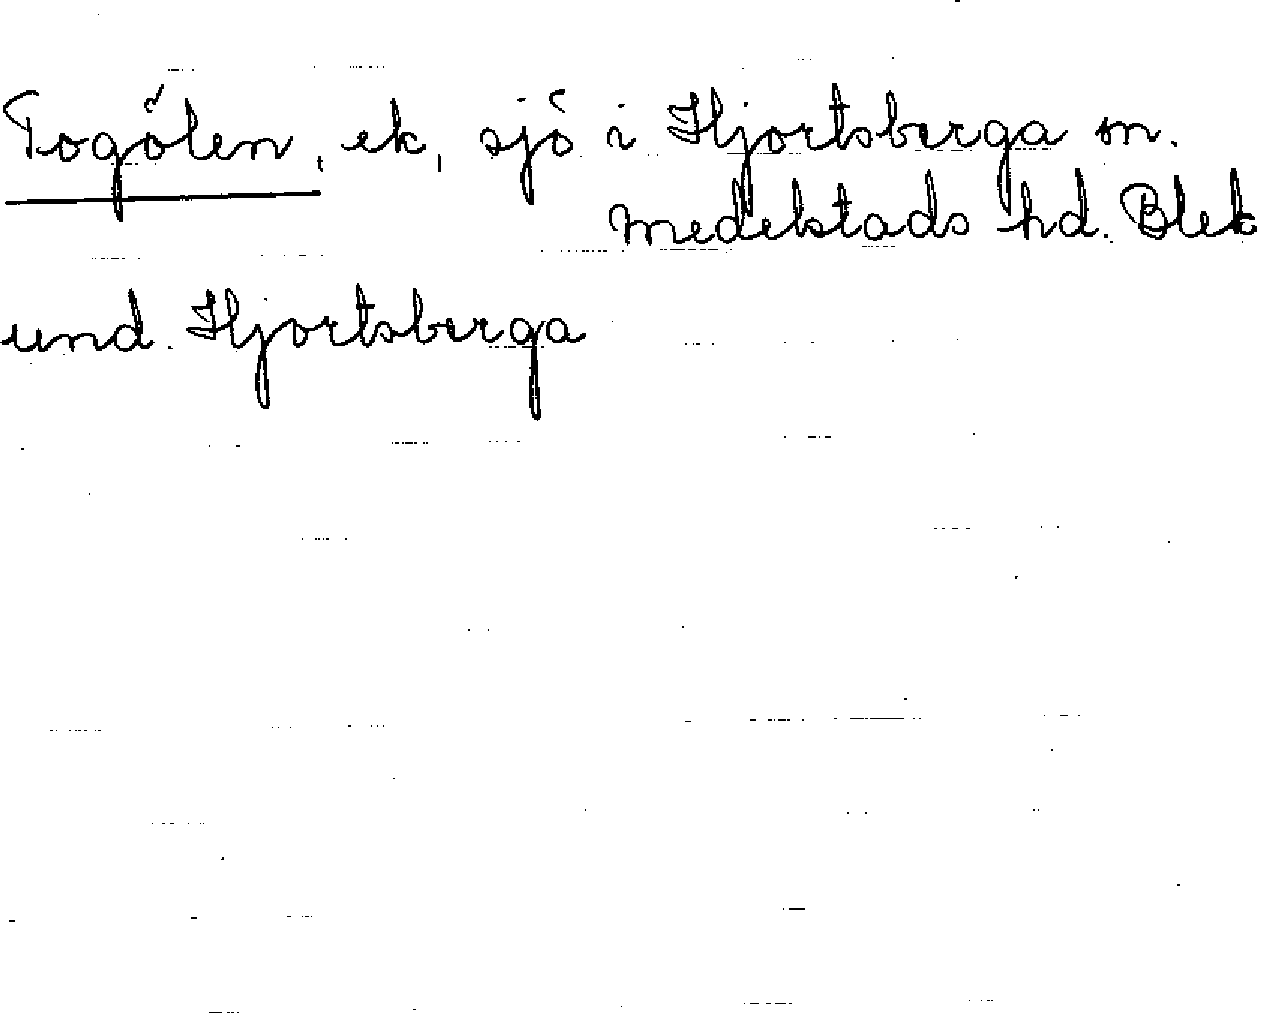 Togölen, ek, sjö i Hjortsberga sn.
Medelstads hd. Blek
und. Hjortsberga